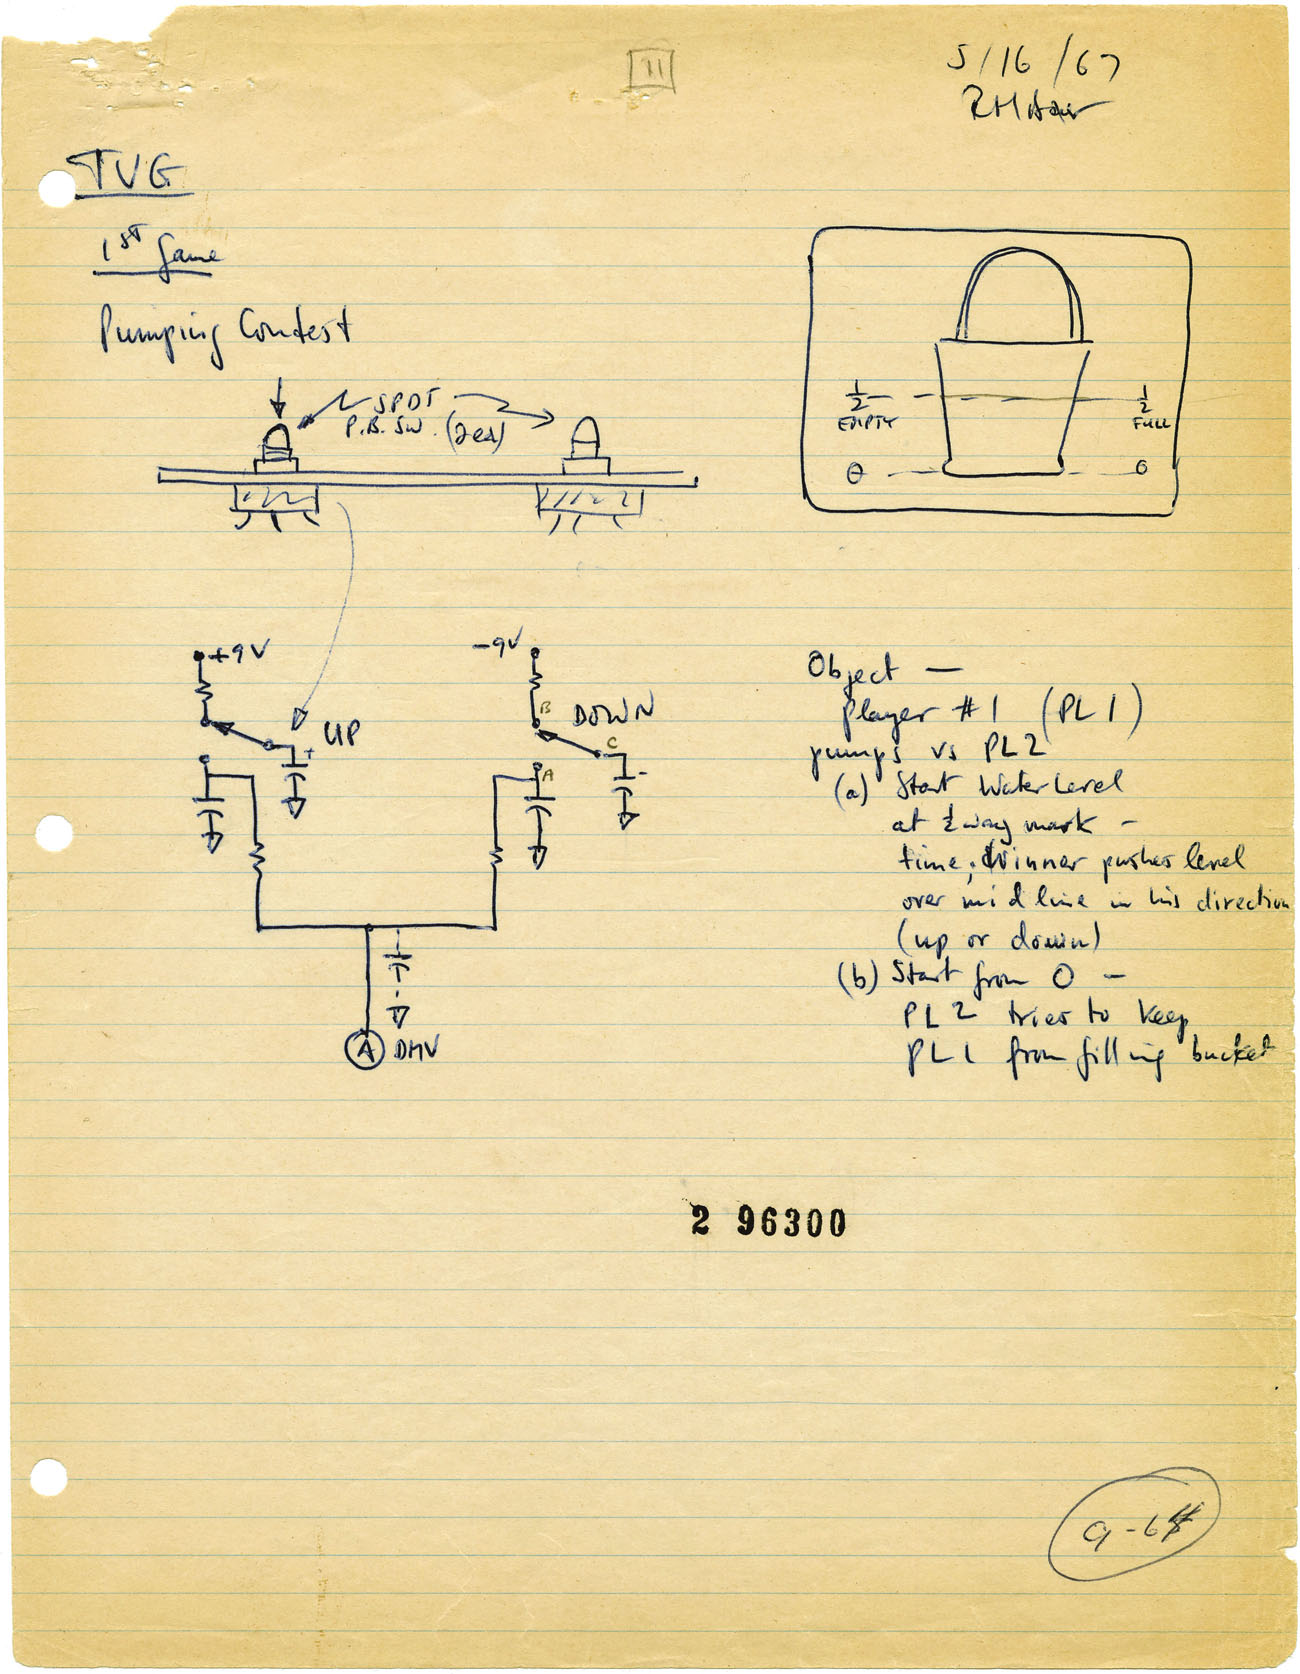 11
5/16/67
TVG
1ST Game
Pumping Contest
SPDT
P.B. SW. (2ea)
1/2
EMPTY
1/2
FULL
0
0
+9V
-9V
B
UP
+
DOWN
C
-
A
A
DMV
Object —
player #1 (PL1)
pumps vs PL2
(a) Start Water Level
at ½ way mark -
time; Winner pushes level
over mid line in his direction
(up or down)
(b) Start from 0 -
PL2 tries to keep
PL1 from filling bucket
2 96300